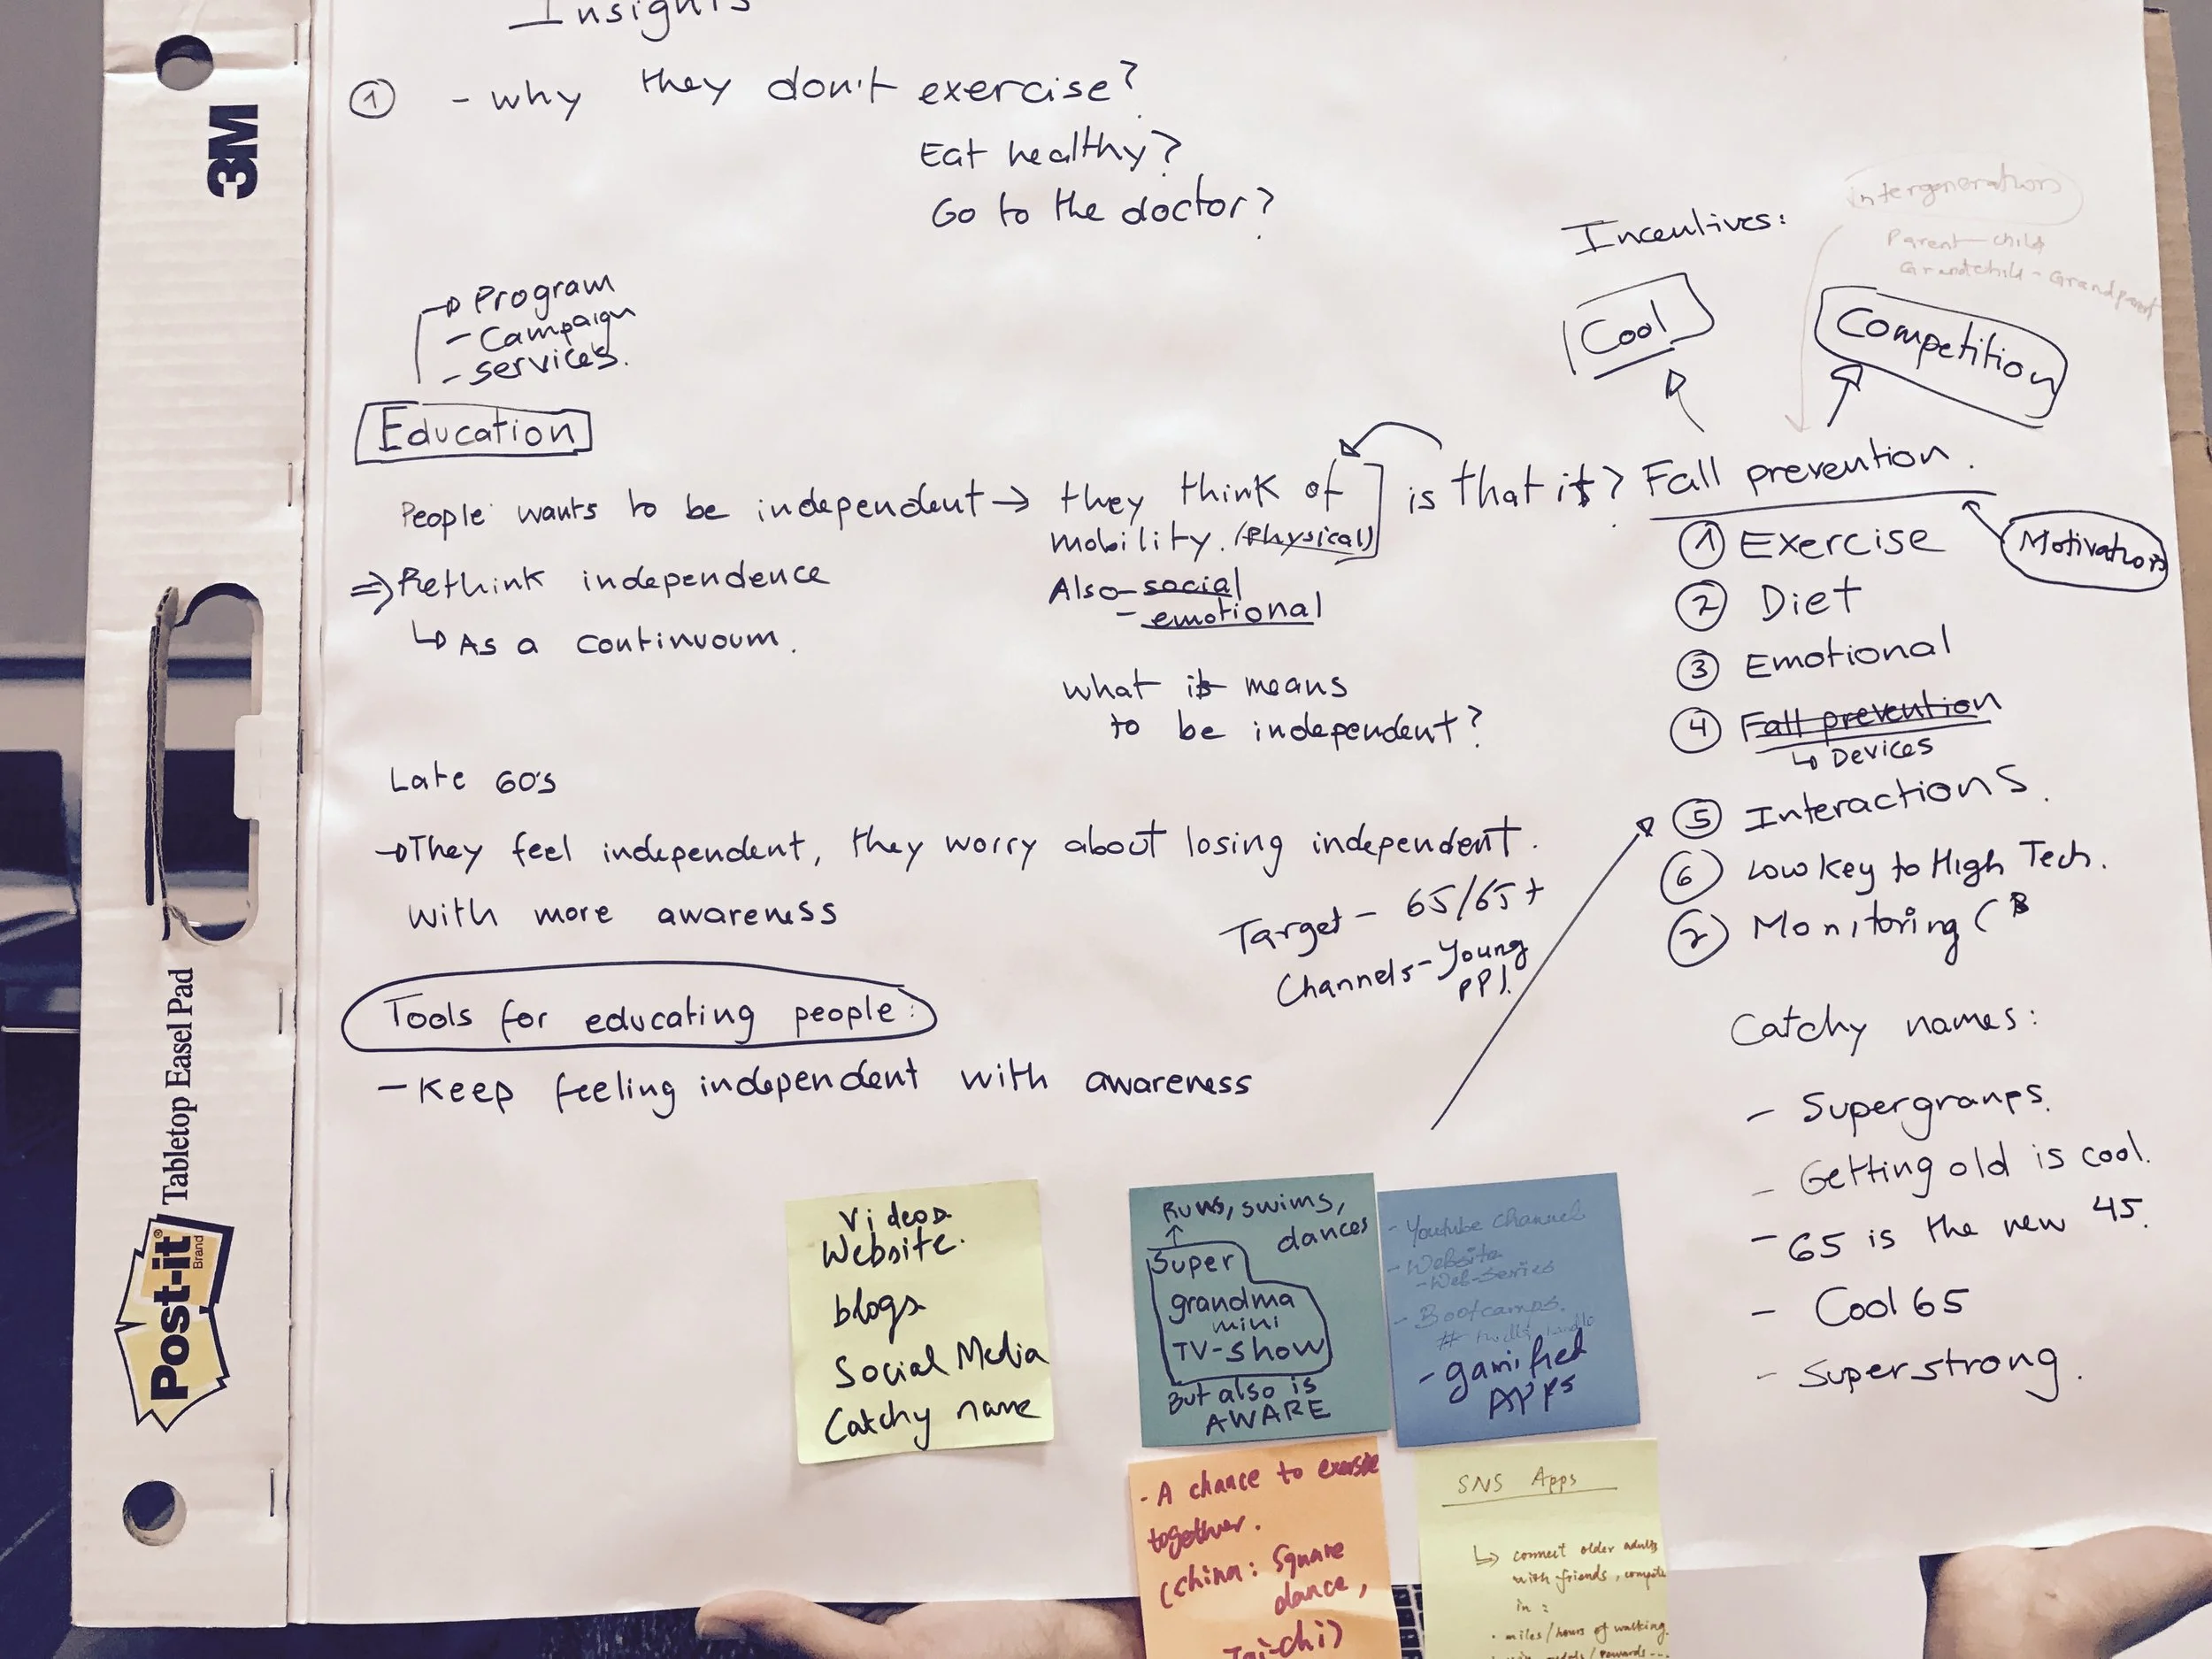 Insights
① - why they don't exercise?
Eat healthy?
Go to the doctor?
→ Program
- Campaign
- services.
Education
People wants to be independent → they think of
mobility. (Physical)
is that it?
Also - social
- emotional
⇒ Rethink independence
↳ As a continuoum.
what it means
to be independent?
Late 60's
→ They feel independent, they worry about losing independent.
with more awareness
Target - 65/65+
Channels - Young
ppl.
Tools for educating people:
- Keep feeling independent with awareness
Incentives:
Intergeneration
Parent - child
Grandchild - Grandparent
Cool
Competition
Fall prevention.
Motivation
① Exercise
② Diet
③ Emotional
④ Fall prevention
↳ Devices
⑤ Interactions.
⑥ Low key to High Tech.
⑦ Monitoring (B
Catchy names:
- Supergranps.
- Getting old is cool.
- 65 is the new 45.
- Cool 65
- Super strong.
Videos
Website.
blogs
Social Media
Catchy name
Runs, swims,
dances
↑
Super
grandma
mini
TV-show
But also is
AWARE
- Youtube Channel
- Website
- Web-series
- Bootcamps.
#
- gamified
APPs
- A chance to exercise
together.
(china: Square
dance,
Tai-chi)
SNS Apps
↳ connect older adults
with friends, compete
in:
· miles/hours of walking.
medals/rewards...
3M
Tabletop Easel Pad
Post-it®
Brand